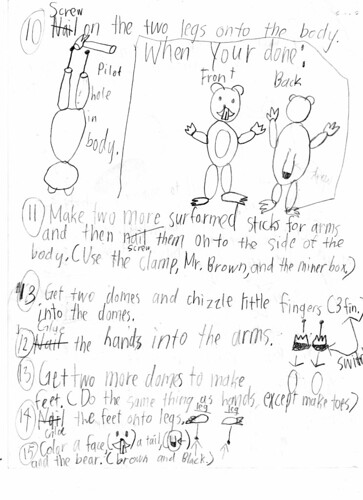 10 Screw Nail on the two legs onto the body.
Pilot hole in body.
When Your done:
Front
Back
11 Make two more surformed sticks for arms
and then nail screw them onto the side of the
body. (Use the clamp, Mr. Brown, and the miter box.)
13 Get two domes and chizzle little fingers (3 fin.)
into the domes.
12 Glue Nail the hands into the arms.
13 Get two more domes to make
feet. (Do the same thing as hands, except make toes)
14 Nail Glue the feet onto legs.
leg
leg
15 Color a face, ( ) a tail, ( )
and the bear. (brown and Black.)